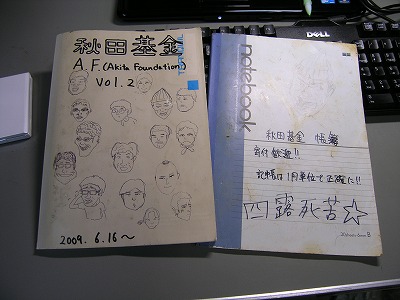 秋田基金
A.F.(Akita Foundation)
Vol.2
2009. 6.16〜
DELL
notebook
秋田基金 帳簿
寄付歓迎!!
記帳は1円単位で正確に!!
四露死苦☆